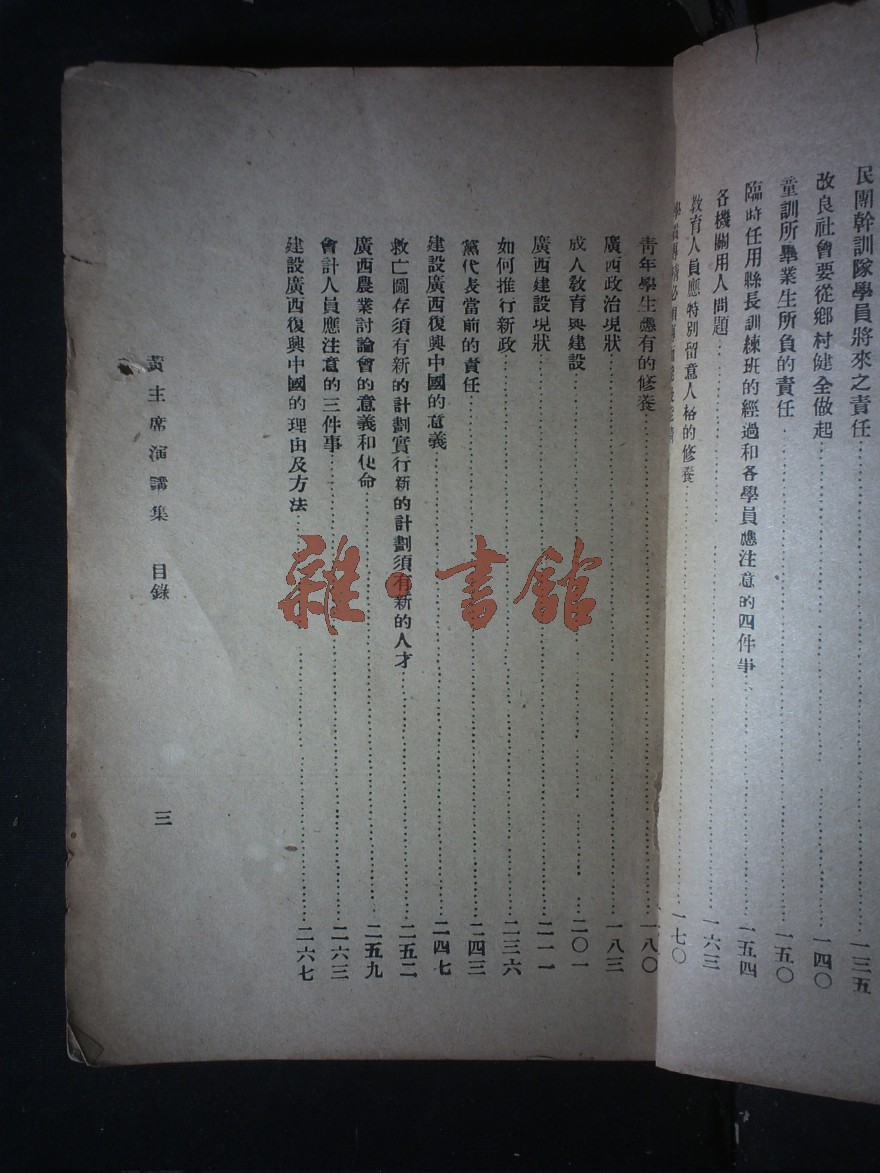 民團幹訓隊學員將來之責任……一三五
改良社會要從鄉村健全做起……一四〇
童訓所畢業生所負的責任……一五〇
臨時任用縣長訓練班的經過和各學員應注意的四件事……一五四
各機關用人問題……一六三
教育人員應特別留意人格的修養……一七〇
青年學生應有的修養……一八〇
廣西政治現狀……一八三
成人教育與建設……二〇一
廣西建設現狀……二一一
如何推行新政……二三六
黨代表當前的責任……二四三
建設廣西復興中國的意義……二四七
救亡圖存須有新的計劃實行新的計劃須有新的人才……二五二
廣西農業討論會的意義和使命……二五九
會計人員應注意的三件事……二六三
建設廣西復興中國的理由及方法……二六七
黃主席演講集 目錄 三
雜·書館